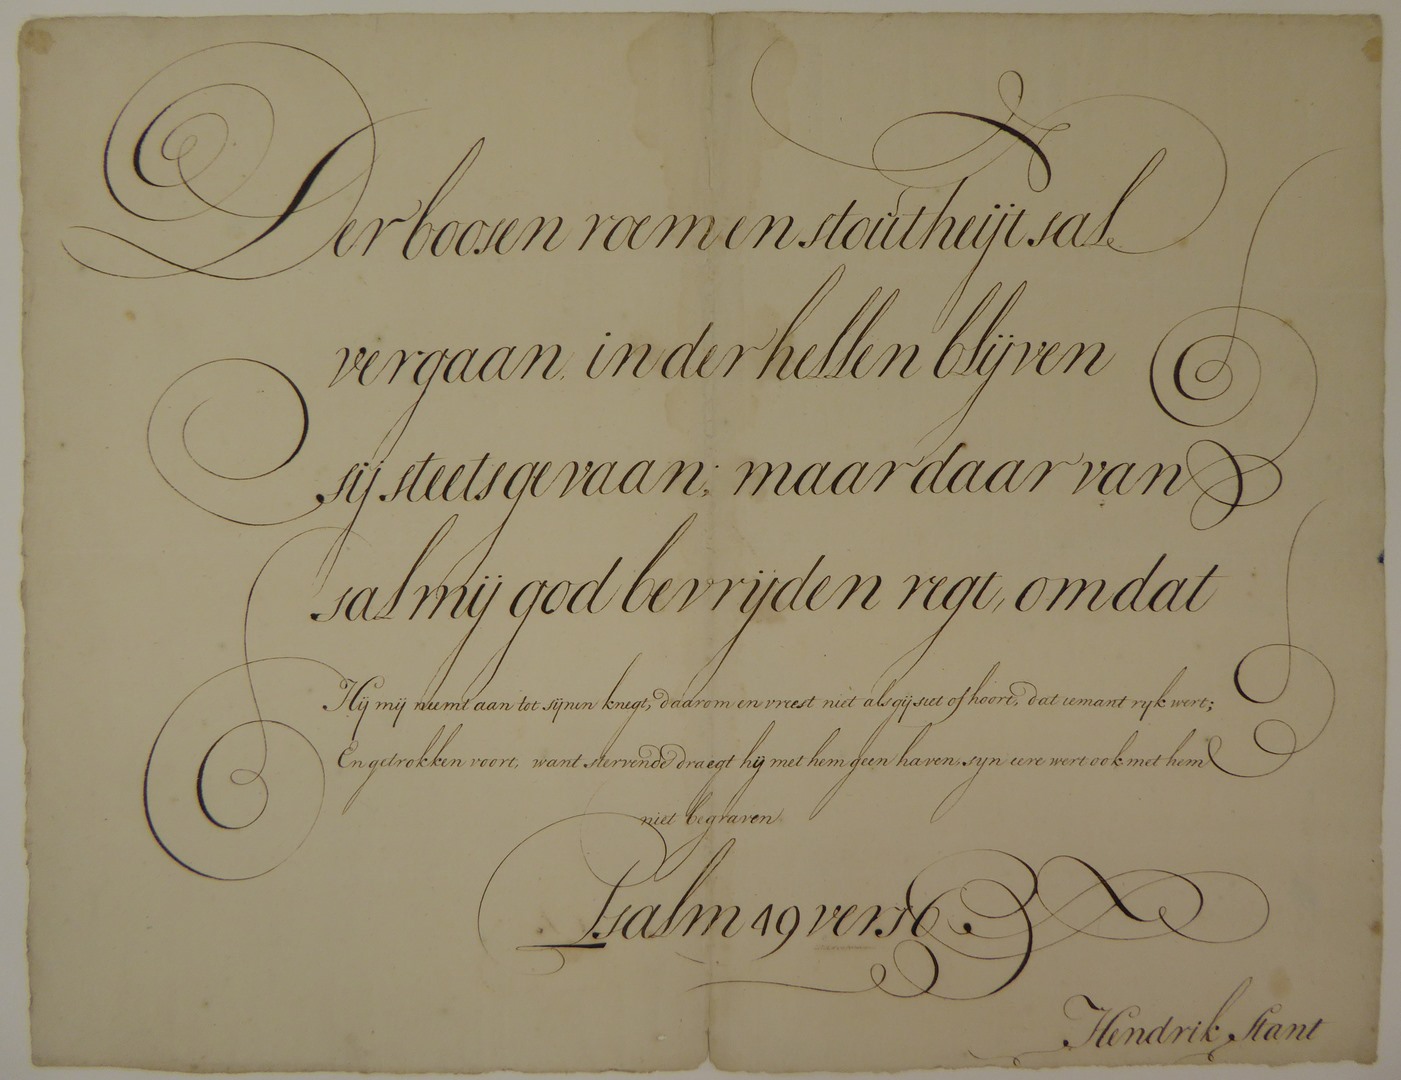 Der boosen roem en stoútheijt sal
vergaan, in der hellen blijven
sij steets gevaan; maar daar van
sal mij god bevrijden regt, omdat
Hij mij neemt aan tot sijnen knegt, daarom en vreest niet als gij siet of hoort, dat iemant ryk wert;
En getrokken voort, want stervende draegt hij met hem geen haven, syn eere wert ook met hem
niet begraven
Psalm 49 vers 6.
Hendrik Kant